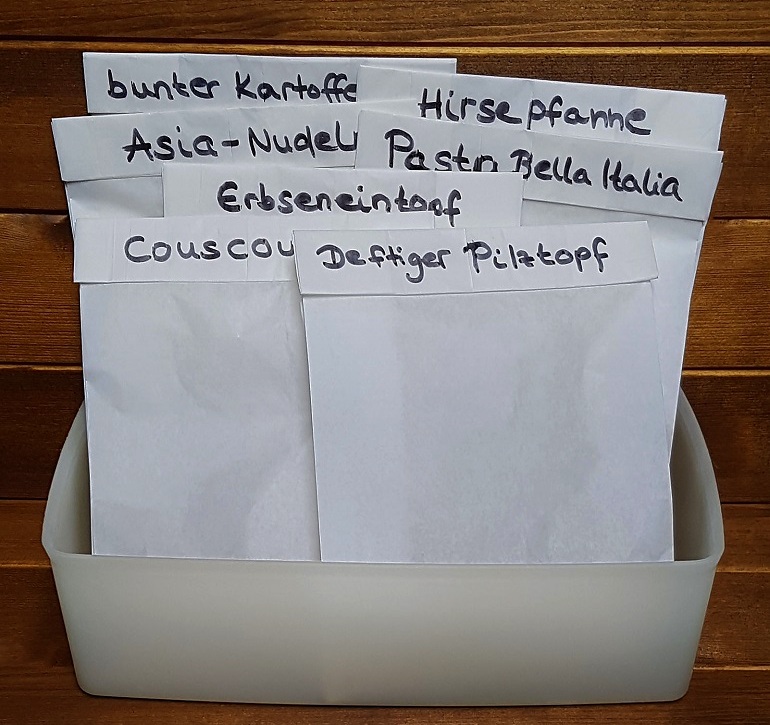 bunter Kartoffe
Hirsepfanne
Asia-Nudel
Pasta Bella Italia
Erbseneintopf
Couscou
Deftiger Pilztopf